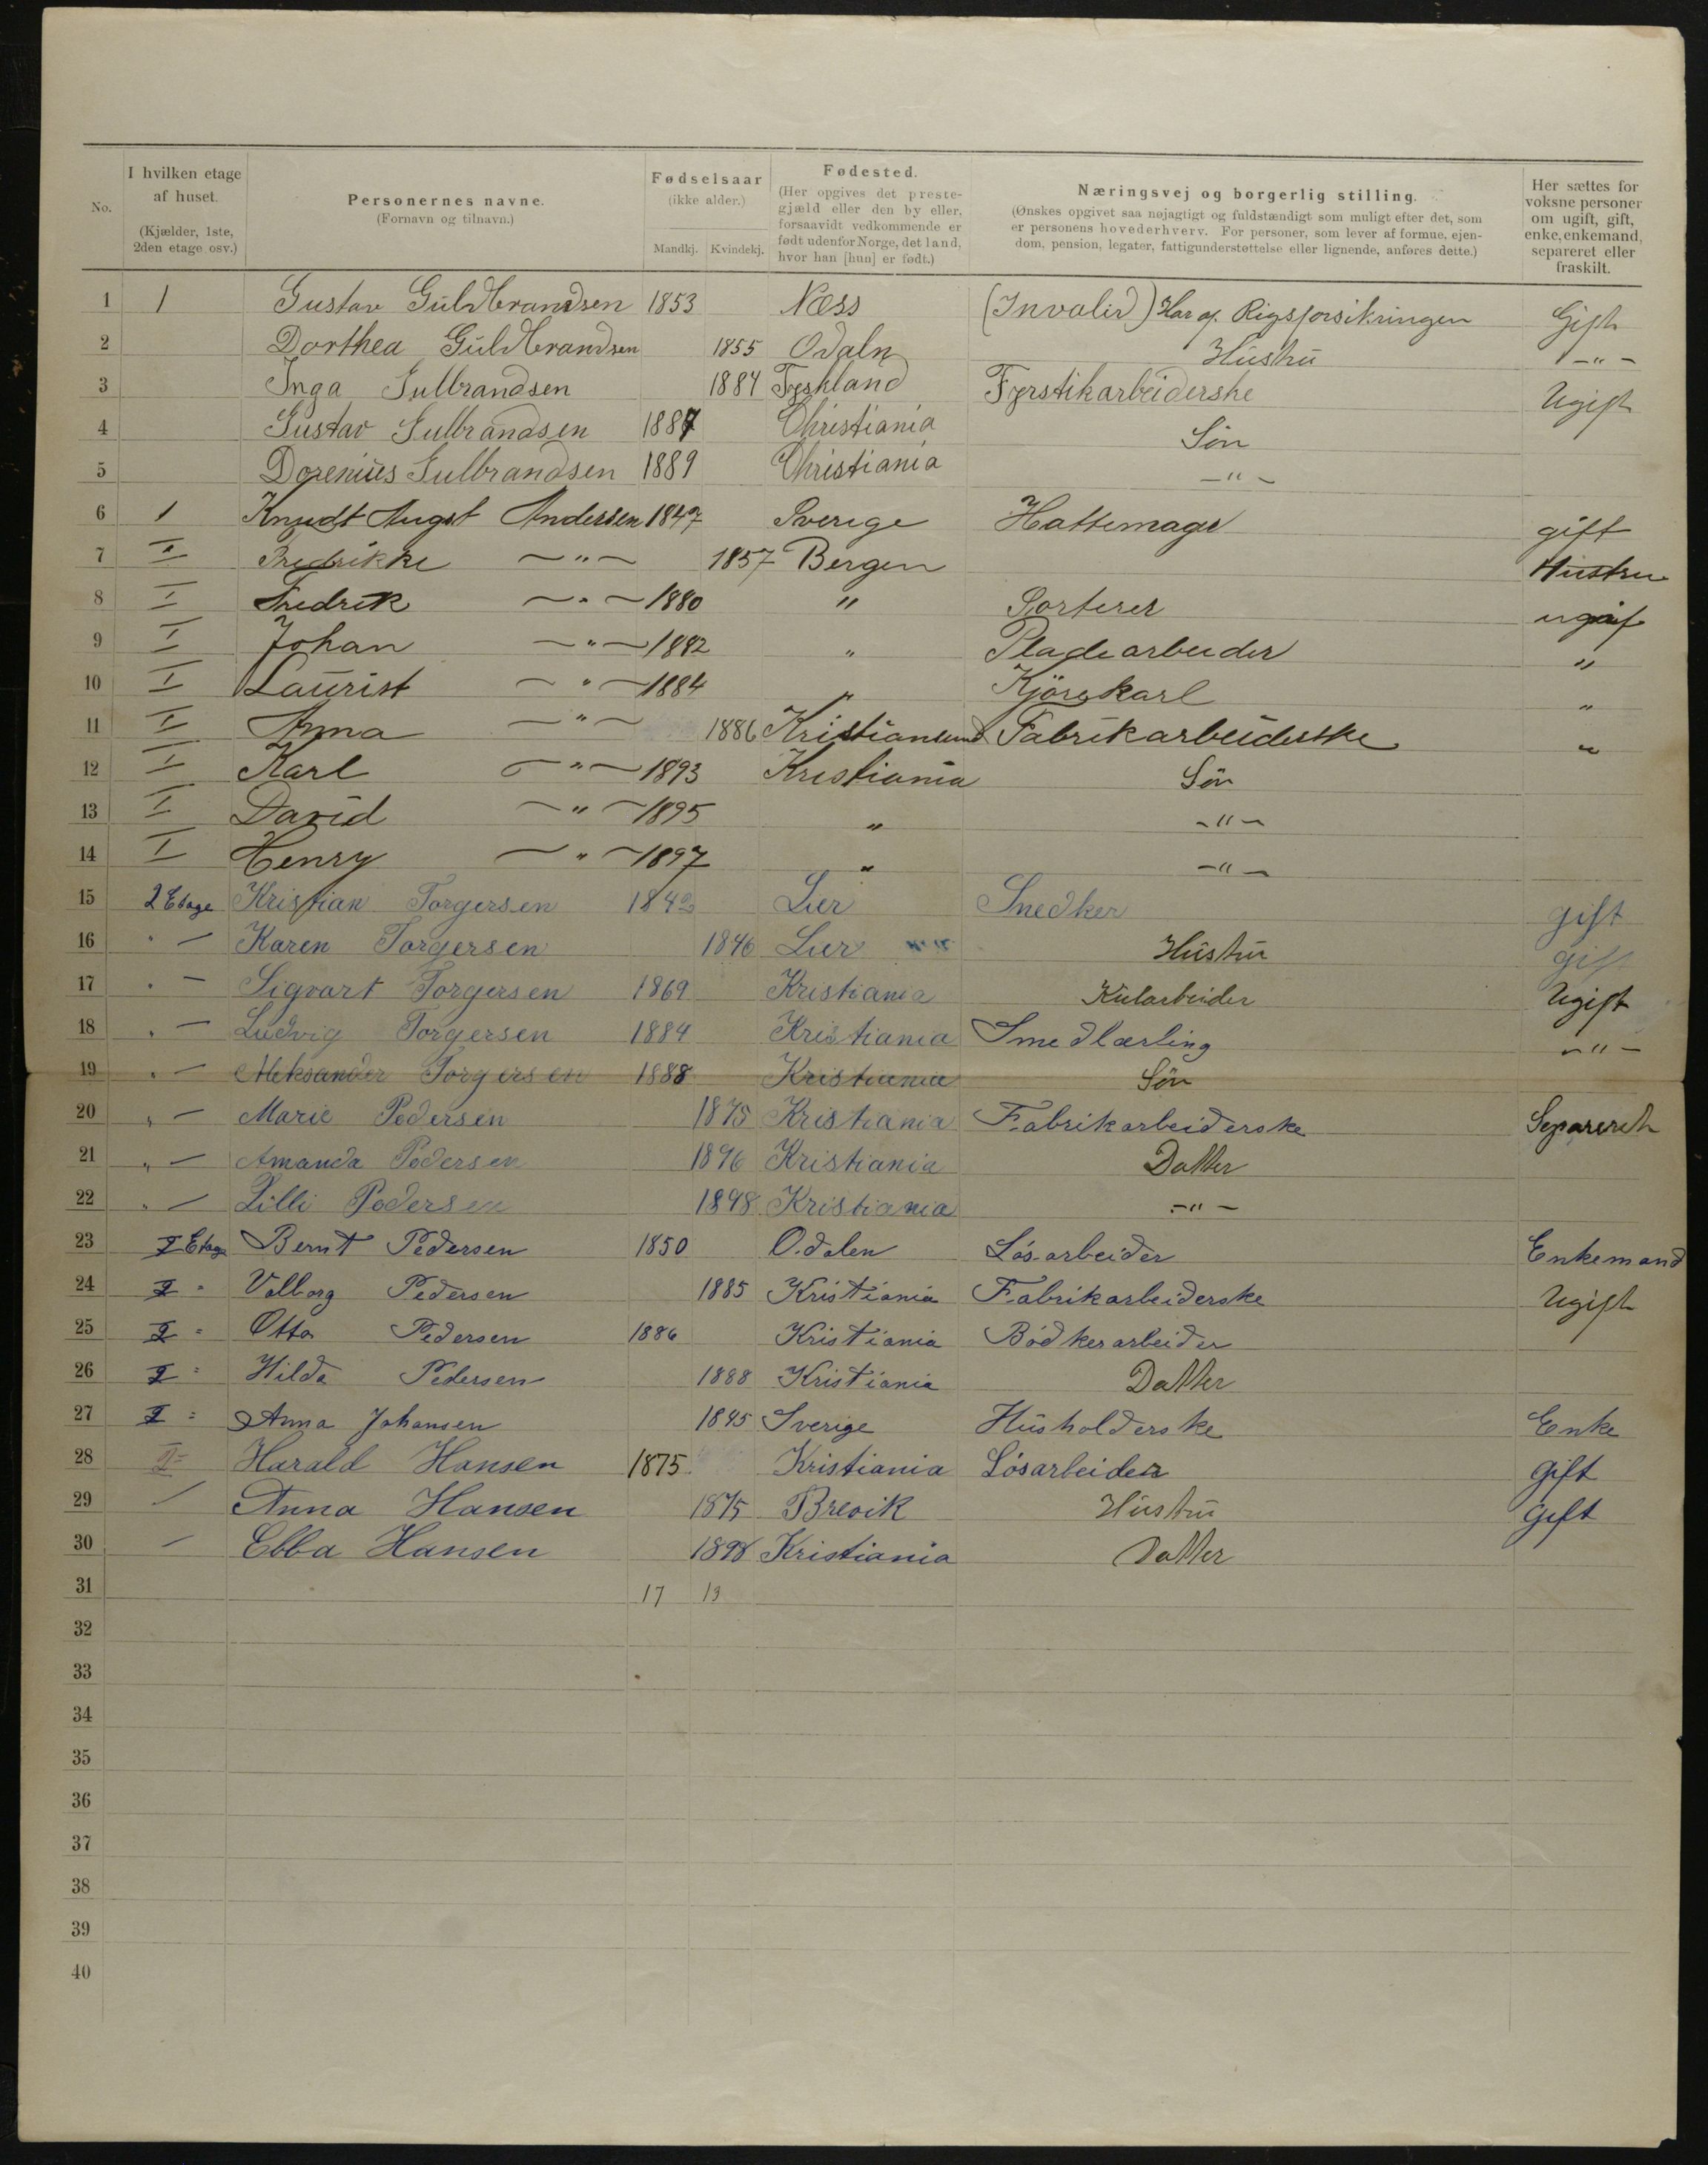 No.
I hvilken etage af huset. (Kjælder, 1ste, 2den etage osv.)
Personernes navne. (Fornavn og tilnavn.)
Fødselsaar (ikke alder.) Mandkj. Kvindekj.
Fødested. (Her opgives det prestegjæld eller den by eller, forsaavidt vedkommende er født udenfor Norge, det land, hvor han [hun] er født.)
Næringsvej og borgerlig stilling. (Ønskes opgivet saa nøjagtigt og fuldstændigt som muligt efter det, som er personens hovederhverv. For personer, som lever af formue, ejendom, pension, legater, fattigunderstøttelse eller lignende, anføres dette.)
Her sættes for voksne personer om ugift, gift, enke, enkemand, separeret eller fraskilt.
1 1 Gustav Guldbrandsen 1853 Næss (Invalid) Har af Rigsforsikringen Gift
2 Dorthea Guldbrandsen 1855 Odaln Hustru -"-
3 Inga Gulbrandsen 1884 Tyskland Fyrstikarbeiderske Ugift
4 Gustav Gulbrandsen 1887 Christiania Søn
5 Dorenius Gulbrandsen 1889 Christiania -"-
6 1 Knudt Augst Andersen 1847 Sverige Hattemager gift
7 I Fredrikke -"- 1857 Bergen Hustru
8 I Fredrik -"- 1880 " Sorterer ugift
9 I Johan -"- 1882 " Pladearbeider "
10 I Laurist -"- 1884 " Kjørekarl "
11 I Anna -"- 1886 Kristiansund Fabrikarbeiderske "
12 I Karl -"- 1893 Kristiania Søn
13 I David -"- 1895 " -"-
14 I Henry -"- 1897 " -"-
15 2 Etage Kristian Torgersen 1842 Lier Snedker gift
16 " - Karen Torgersen 1846 Lier Hustru gift
17 " - Sigvart Torgersen 1869 Kristiania Kularbeider Ugift
18 " - Ludvig Torgersen 1884 Kristiania Smedlærling -"-
19 " - Aleksander Torgersen 1888 Kristiania Søn
20 " - Marie Pedersen 1875 Kristiania Fabrikarbeiderske Separeret
21 " - Amanda Pedersen 1896 Kristiania Datter
22 " - Lilli Pedersen 1898 Kristiania -"-
23 2 Etage Bernt Pedersen 1850 Odalen Løsarbeider Enkemand
24 2 " Valborg Pedersen 1885 Kristiania Fabrikarbeiderske Ugift
25 2 " Otto Pedersen 1886 Kristiania Bødkerarbeider
26 2 " Hilda Pedersen 1888 Kristiania Datter
27 2 " Anna Johansen 1845 Sverige Husholderske Enke
28 2 " Harald Hansen 1875 Kristiania Løsarbeider gift
29 - Anna Hansen 1875 Brevik Hustru gift
30 - Ebba Hansen 1898 Kristiania Datter
31 17 13
32
33
34
35
36
37
38
39
40